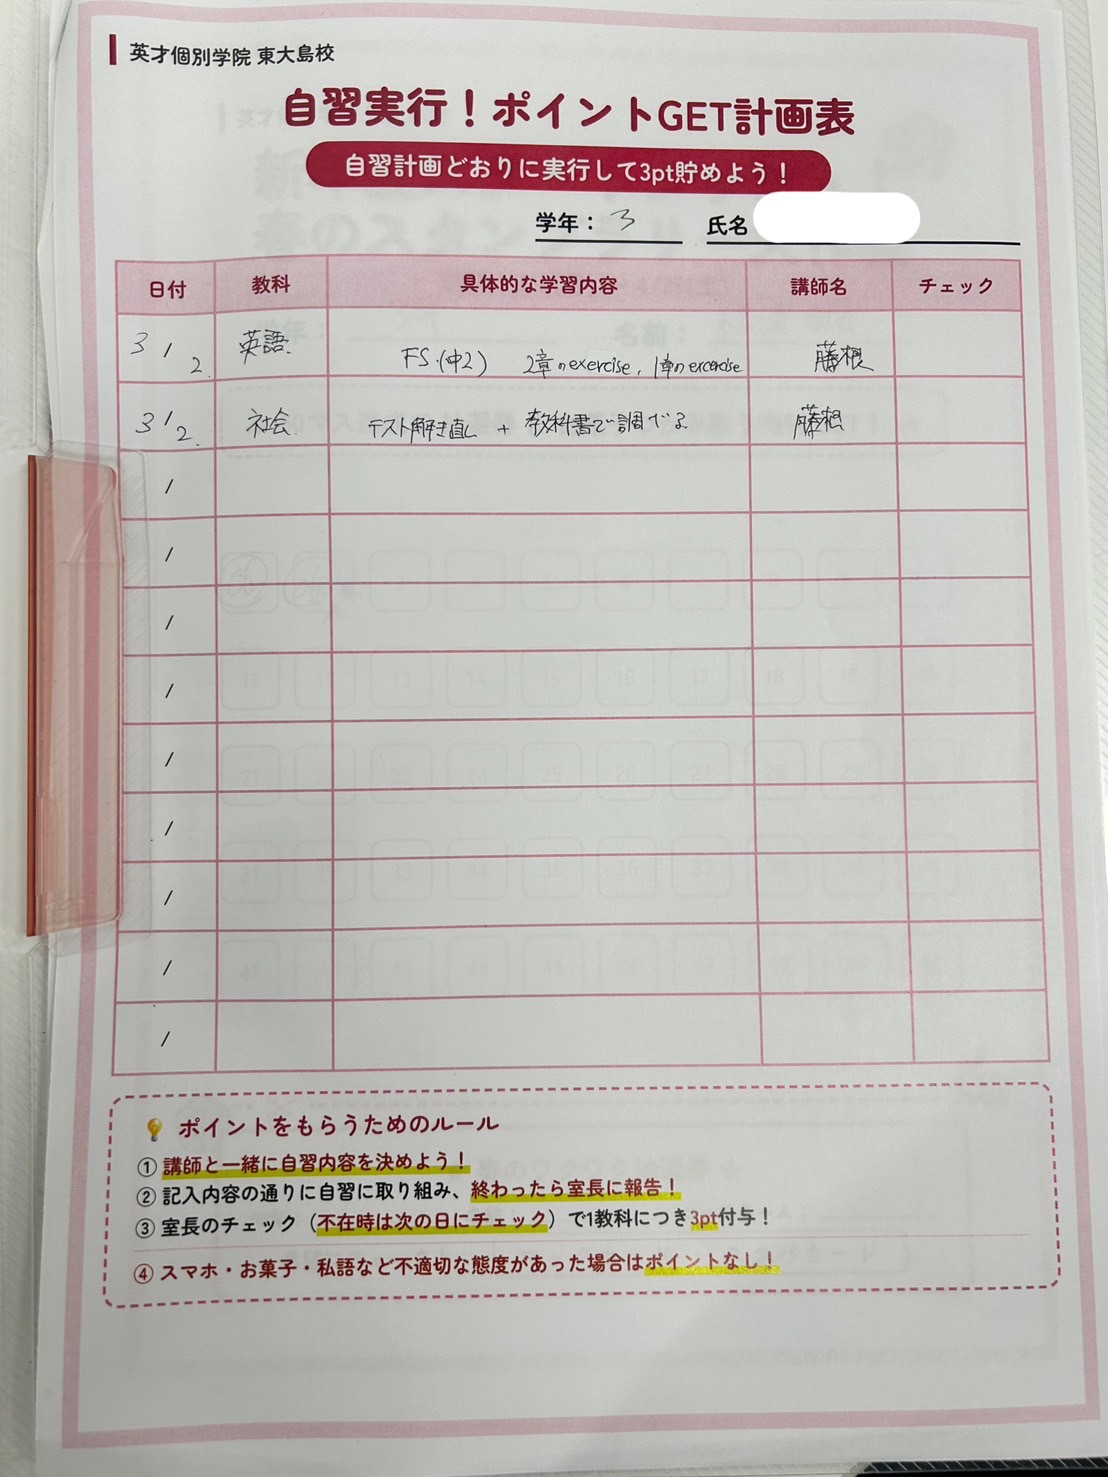 英才個別学院 東大島校
自習実行！ポイントGET計画表
自習計画どおりに実行して3pt貯めよう！
学年： 3 氏名
日付 教科 具体的な学習内容 講師名 チェック
3 / 2. 英語. FS.(中2) 2章のexercise, 1章のexercise 藤根
3 / 2. 社会. テスト解き直し + 教科書で調べる 藤根
/
/
/
/
/
/
/
/
/
ポイントをもらうためのルール
① 講師と一緒に自習内容を決めよう！
② 記入内容の通りに自習に取り組み、終わったら室長に報告！
③ 室長のチェック（不在時は次の日にチェック）で1教科につき3pt付与！
④ スマホ・お菓子・私語など不適切な態度があった場合はポイントなし！